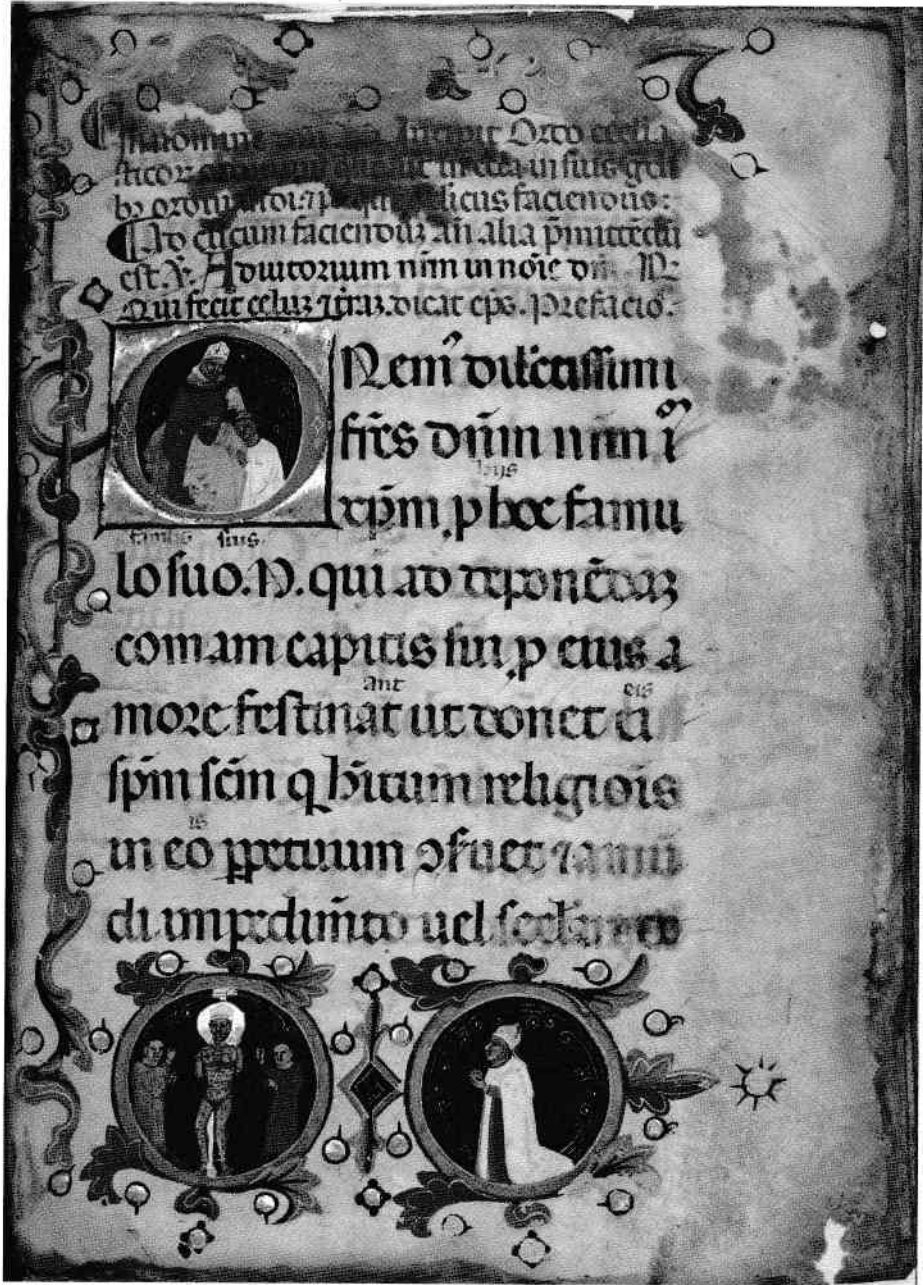 Incipit Ordo
in suis
faciendus:
Ad cl'icum faciendũ añ alia p̃mittẽdũ
est. ℣. Adiutorium nr̃m in nõie dñi ℟.
Qui fecit celuȝ ⁊ t'raȝ. dicat ep̃s. Prefacio.
ORem' dilectissimi
fr̃es dñm nr̃m i
hijs
xp̃m. ꝓ hoc famu
famul' suis.
lo suo. N. qui ad deponẽdaȝ
comam capitis sui ꝓ eius a
ant eis
more festinat ut donet ei
sp̃m sc̃m q hitum religiois
is
in eo ꝑpetuum ꝯseruet ⁊ a mũ
di impedim̃to uel sec̃lari